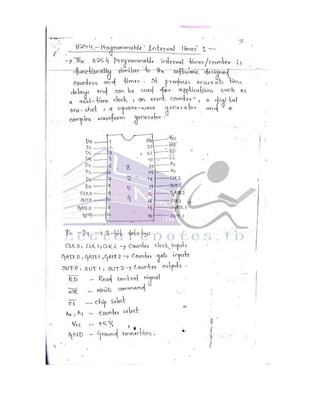 8254 :- Programmable Interval Timer :-
→ The 8254 Programmable interval timer/counter is
functionally similar to the software designed
counters and timer. It produces accurate time
delays and can be used for applications such as
a real-time clock, an event counter, a digital
one-shot, a square-wave generator and a
complex waveform generator.
D7 1 24 Vcc
D6 2 23 WR
D5 3 22 RD
D4 4 21 CS
D3 5 8 20 A1
D2 6 2 19 A0
D1 7 18 CLK2
D0 8 5 17 OUT2
CLK0 9 4 16 GATE2
OUT0 10 15 CLK1
GATE0 11 14 GATE1
GND 12 13 OUT1
lecturenotes.in
D0 - D7 → 8-bit data bus
CLK0, CLK1, CLK2 → Counter clock inputs
GATE0, GATE1, GATE2 → Counter gate inputs
OUT0, OUT1, OUT2 → Counter outputs -
RD - Read control signal
WR - write command
CS - chip select
A0, A1 - counter select
Vcc - +5V
GND - Ground connection.